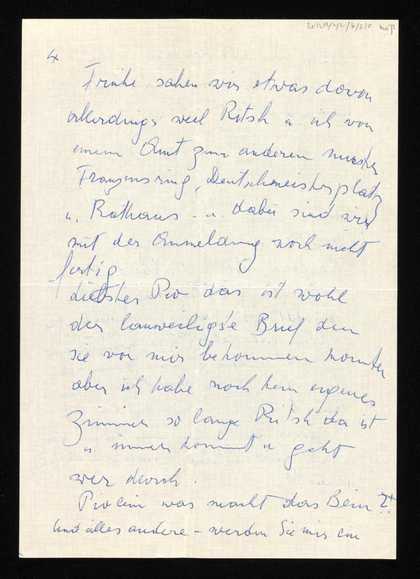 4
Frühe sahen wir etwas davon
allerdings weil Ritsh u ich von
einem Amt zum anderen mussten
Franzensring, Deutschmeisterplatz
u. Rathaus - u. dabei sind wir
mit der Anmeldung noch nicht
fertig
Liebster Piv das ist wohl
der langweiligste Brief den
sie von mir bekommen konnten
aber ich habe noch kein eigenes
Zimmer so lange Ritsh da ist
u immer kommt u geht
wer durch.
was macht das Bein?
Und alles andere - werden Sie mir ein